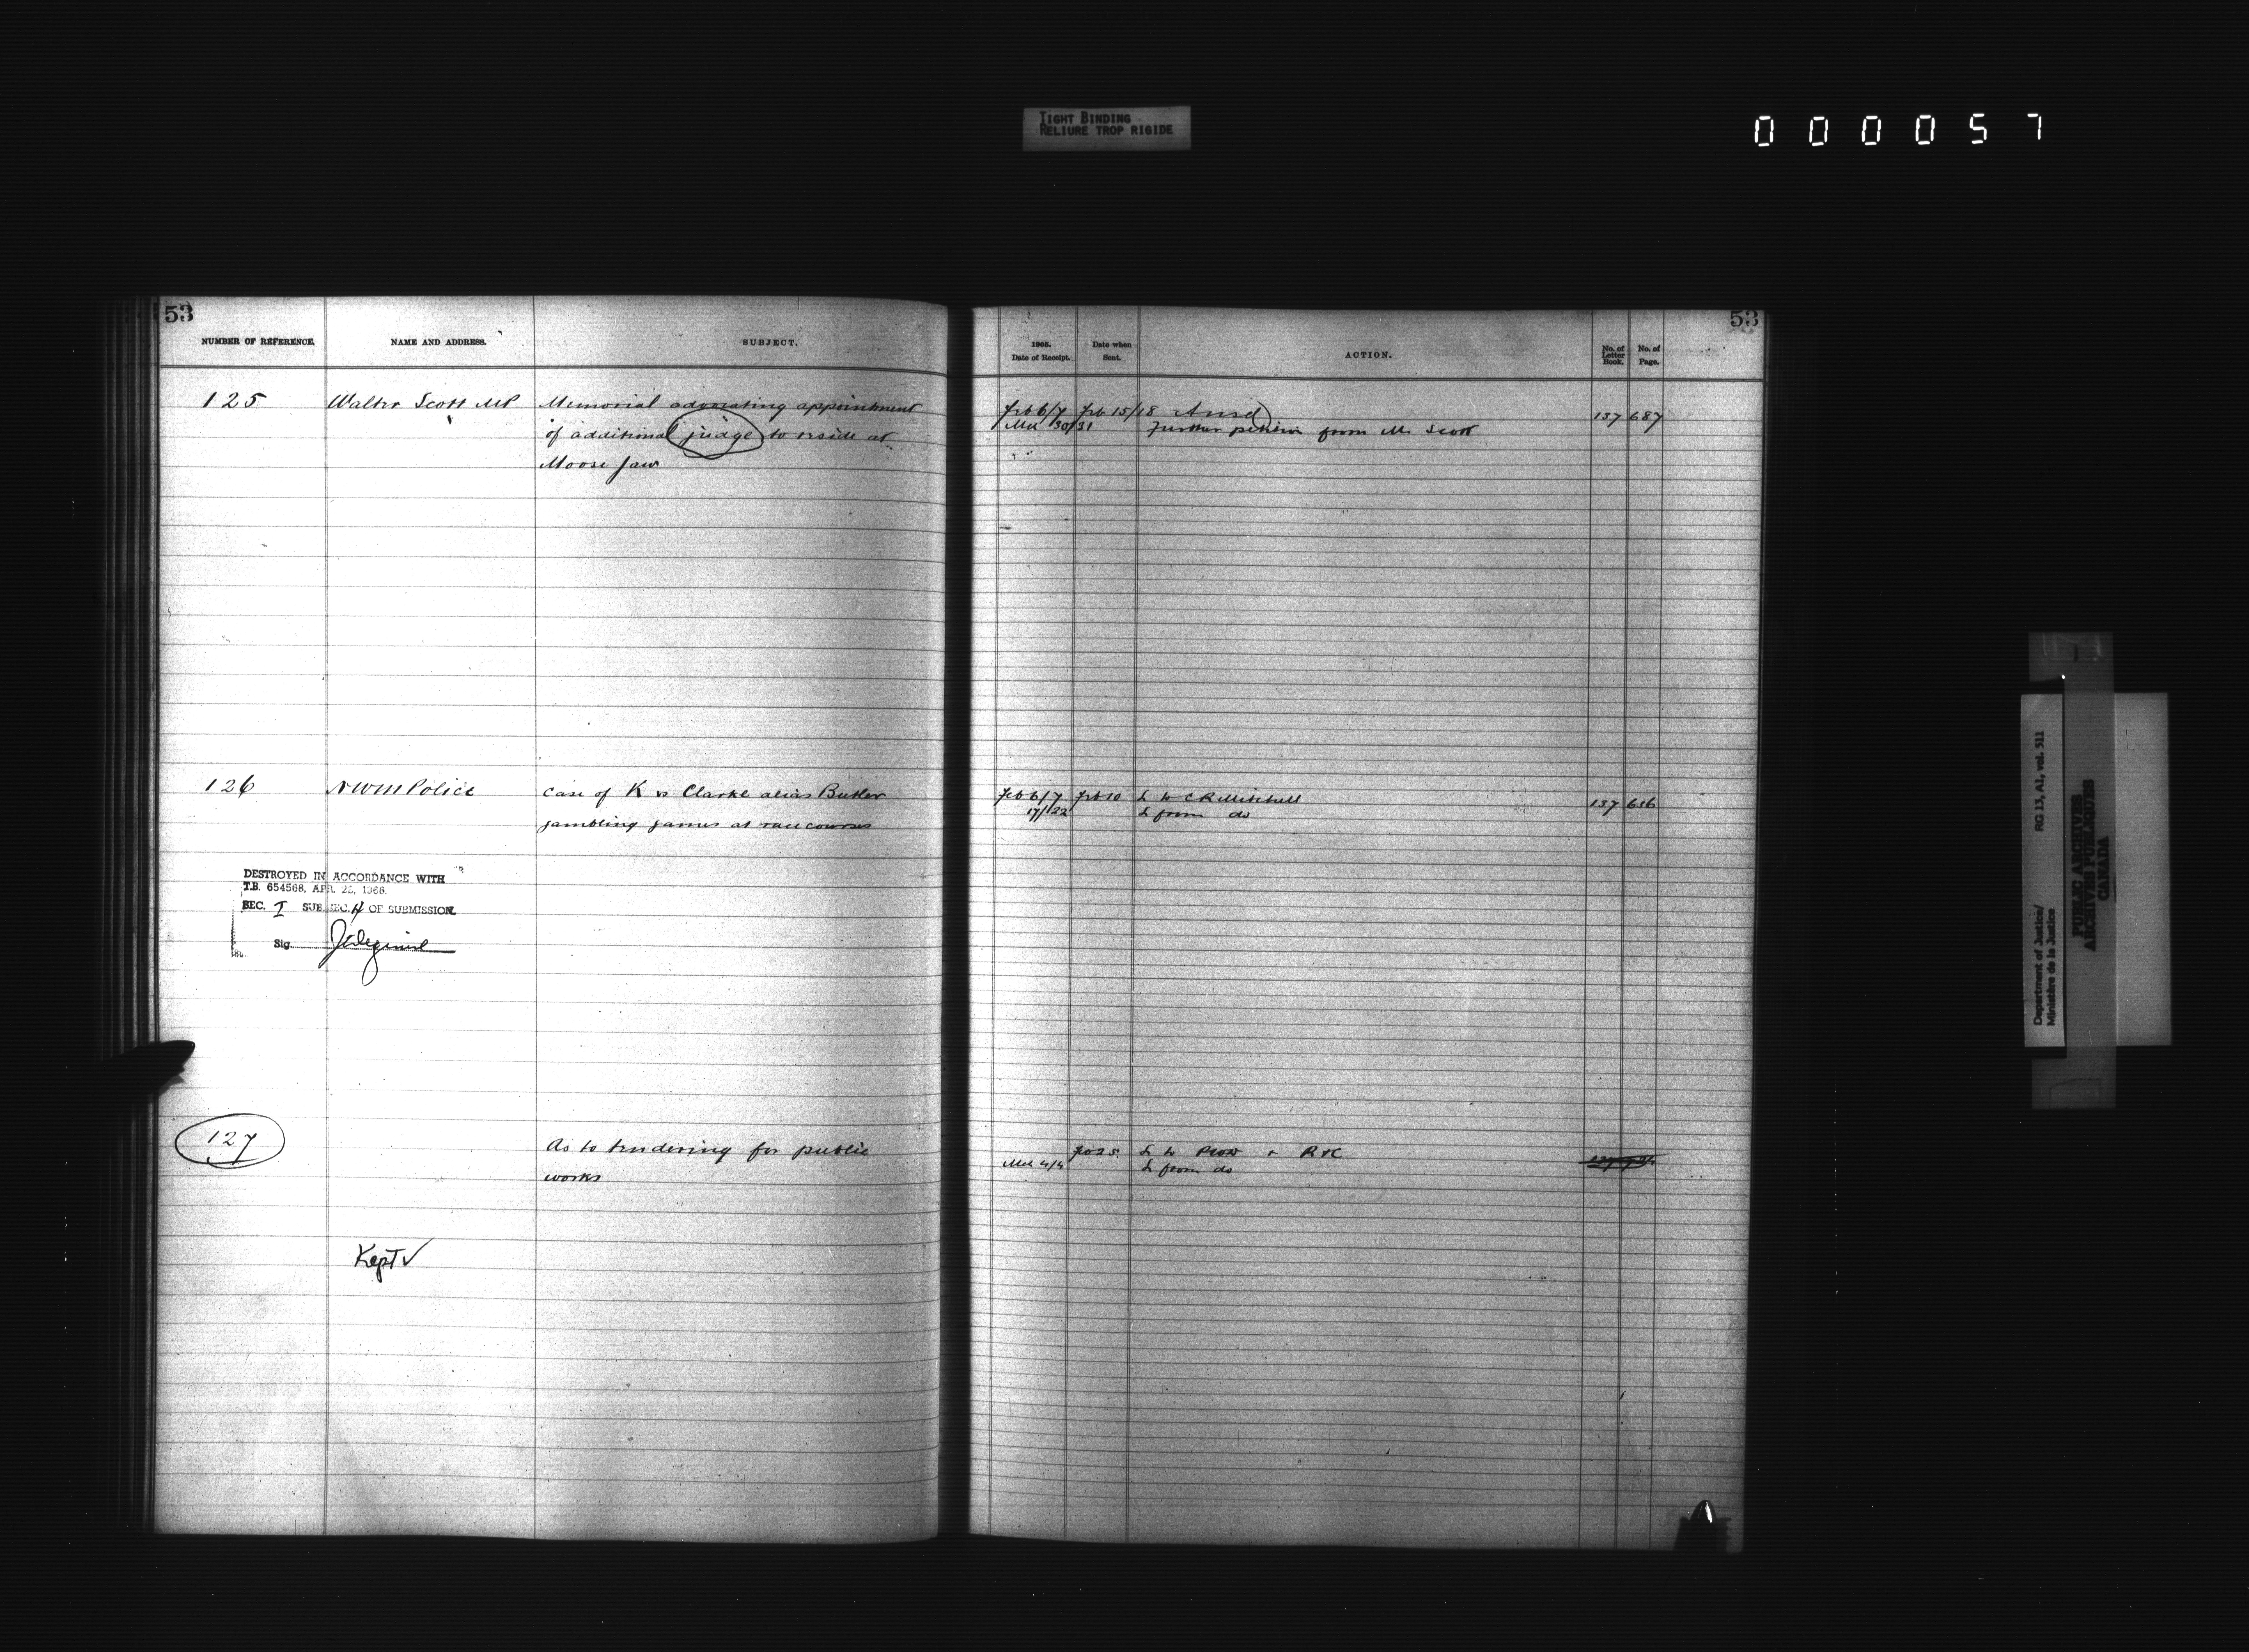 TIGHT BINDING
RELIURE TROP RIGIDE
000057
53
NUMBER OF REFERENCE.
NAME AND ADDRESS.
SUBJECT.
125
Walter Scott MP
Memorial advocating appointment
of additional judge to reside at
Moose Jaw
126
NWM Police
Case of K vs Clarke alias Butler
gambling games at race courses
DESTROYED IN ACCORDANCE WITH
T.B. 654568, APR. 28, 1966.
SEC. I SUB.SEC. H OF SUBMISSION.
Sig.
127
As to tendering for public
works
Kept ✓
53
1905.
Date of Receipt.
Date when
Sent.
ACTION.
No. of
Letter
Book.
No. of
Page.
Feb 6/7 Feb 15/18 Ansd 137 687
Mch 30/31 Further petition from Mr Scott
Feb 6/7 Feb 10 L to C R Mitchell 137 656
17/22 L from do
Feb 25 L to PWD & R&C
Mch 4/4 L from do
Department of Justice/
Ministère de la Justice
RG 13, A1, vol. 511
PUBLIC ARCHIVES
ARCHIVES PUBLIQUES
CANADA